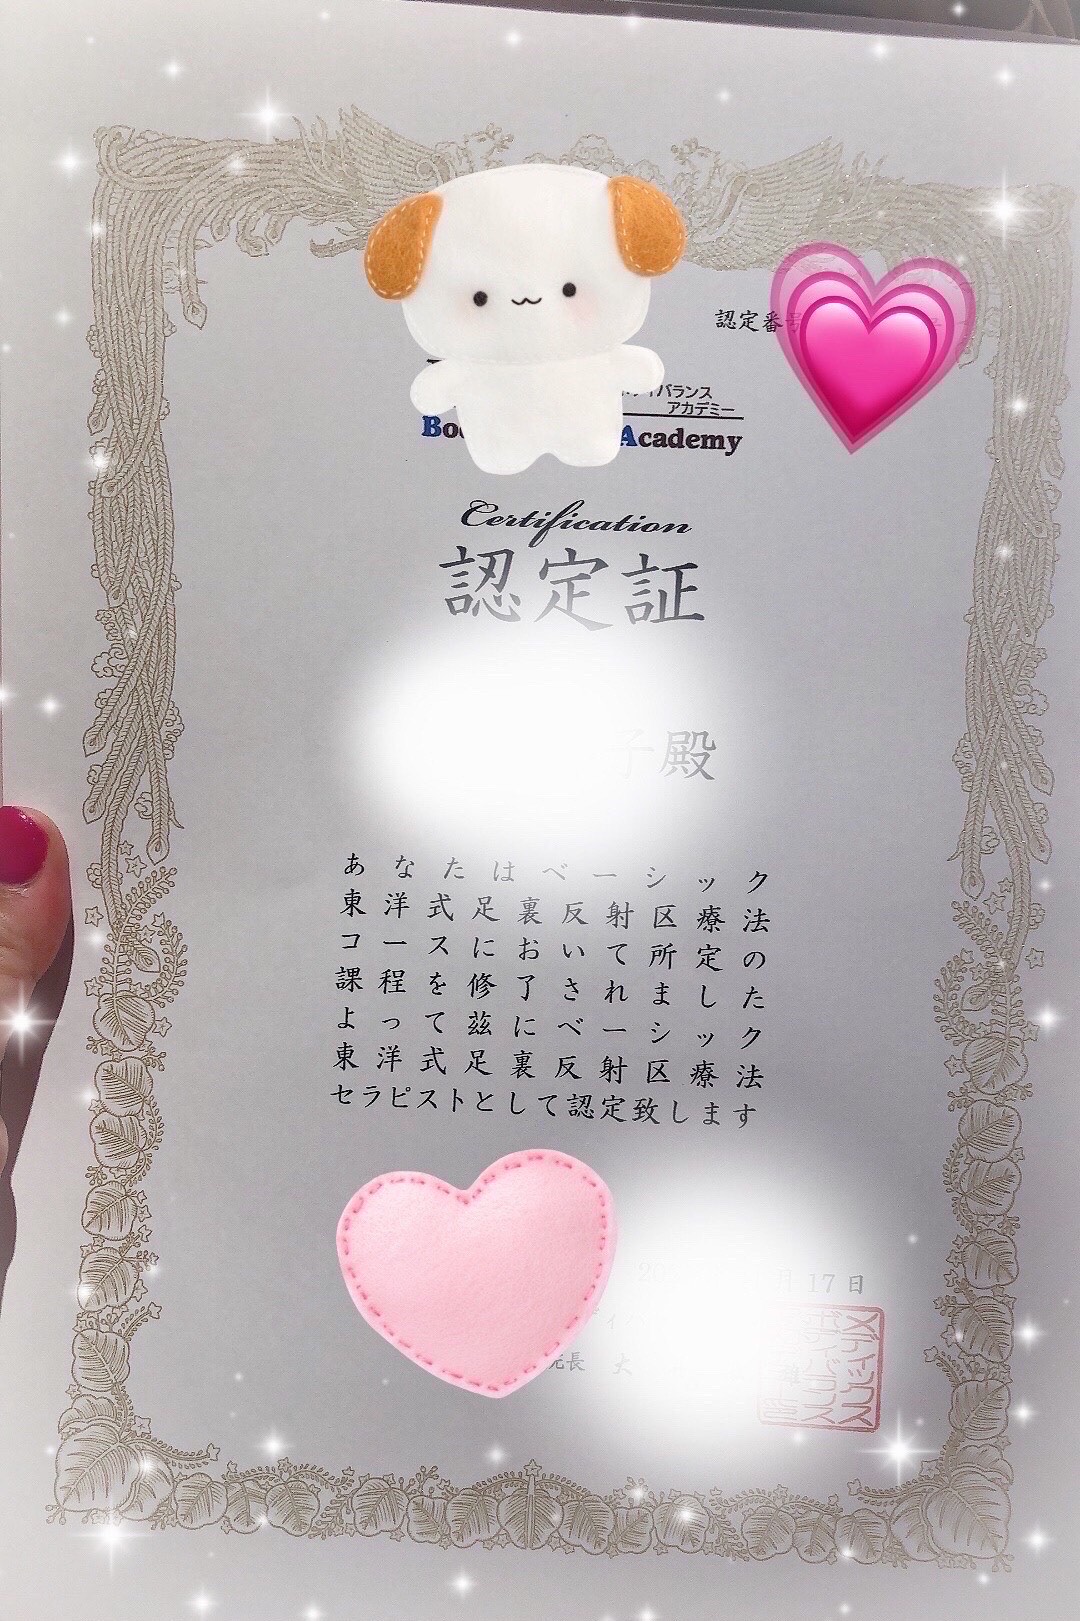 認定番
バランス
アカデミー
Academy
Certification
認定証
子殿
あなたはベーシック
東洋式足裏反射区療法
コースにおいて所定の
課程を修了されました
よって茲にベーシック
東洋式足裏反射区療法
セラピストとして認定致します
月17日
院長 大
メディックス
ボディバランス